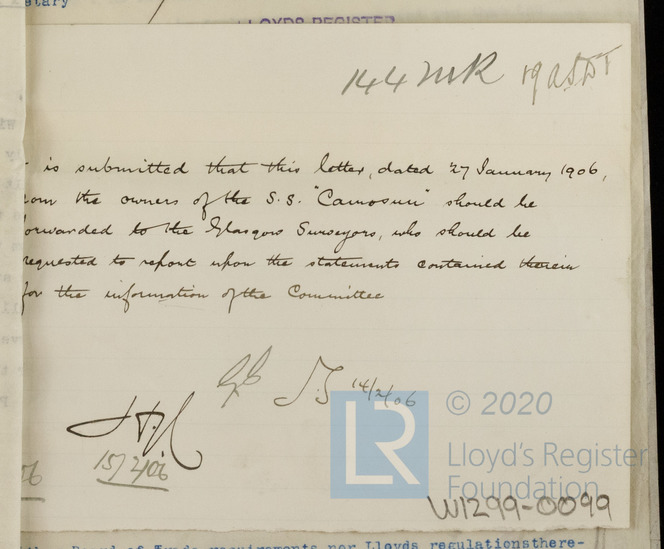 etary
LLOYDS REGISTER
144 MR
is submitted that this letter, dated 27 January 1906,
om the owners of the S.S. "Camosun" should be
orwarded to the Glasgow Surveyors, who should be
requested to report upon the statements contained therein
for the information of the Committee
14/2/06
15/2/06
06
LR
© 2020
Lloyd's Register
Foundation
W1299-0099
Board of Trade requirements nor Lloyds regulationsthere-